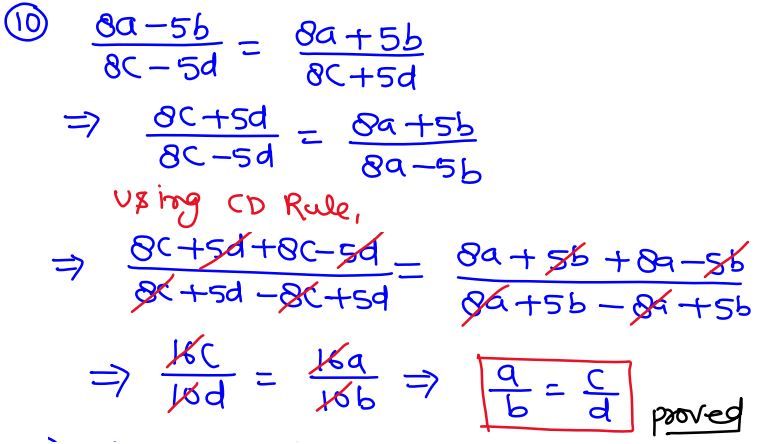 (10) (8a-5b)/(8c-5d) = (8a+5b)/(8c+5d)
⇒ (8c+5d)/(8c-5d) = (8a+5b)/(8a-5b)
Using CD Rule,
⇒ (8c+5d+8c-5d)/(8c+5d-8c+5d) = (8a+5b+8a-5b)/(8a+5b-8a+5b)
⇒ 16c/10d = 16a/10b ⇒ a/b = c/d proved